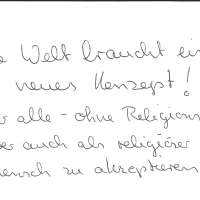 e Welt braucht ein
neues Konzept!
r alle - ohne Religions
er auch als religiöser
ensch zu akzeptieren